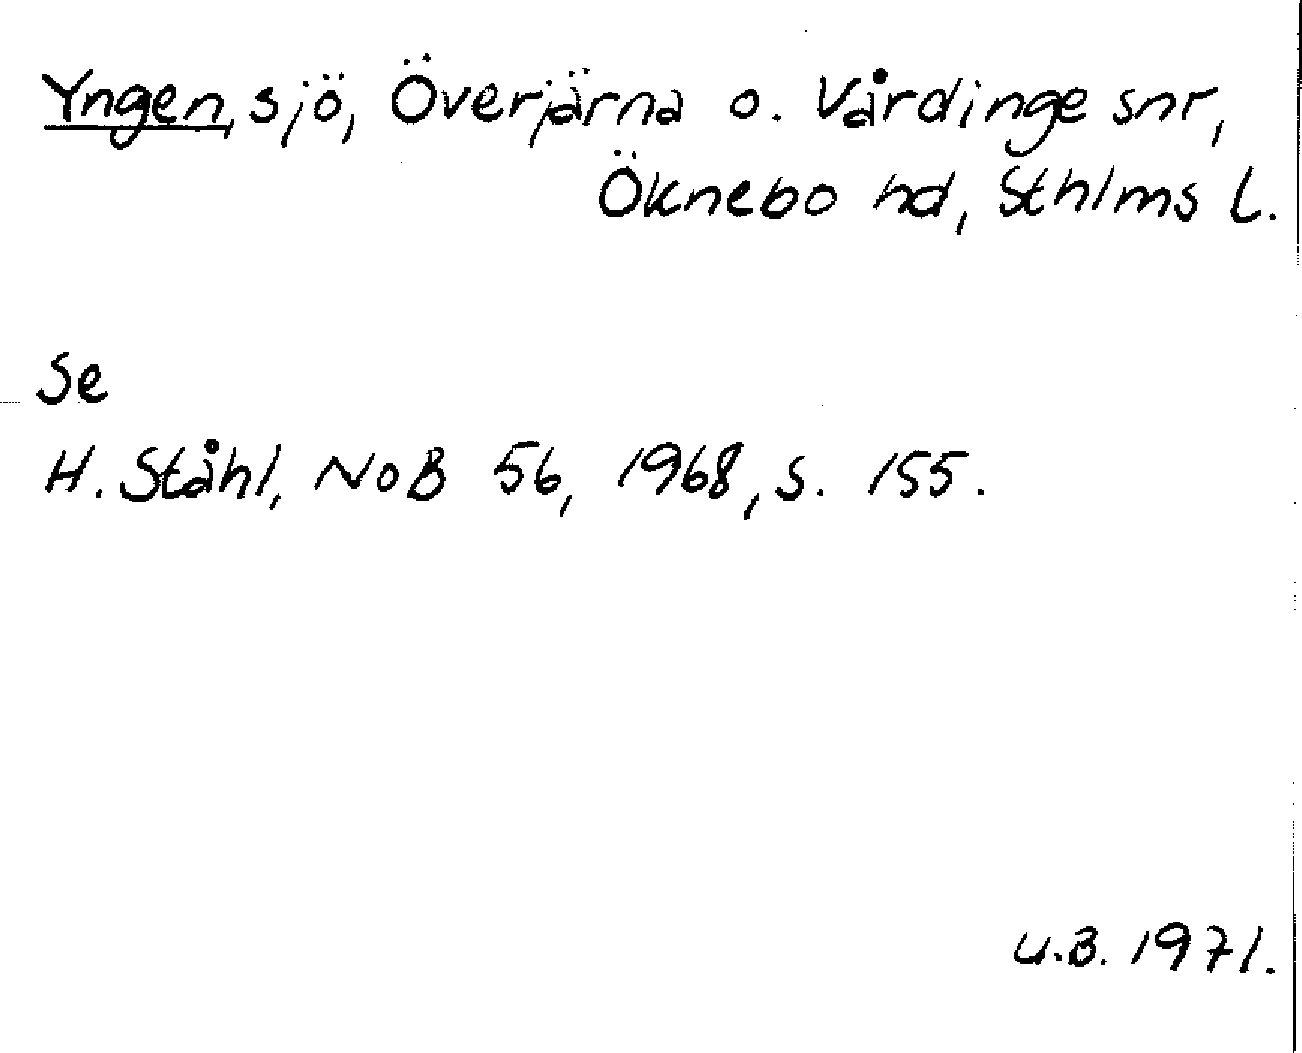 Yngen, sjö, Överjärna o. Vårdinge snr,
Öknebo hd, Sthlms l.
Se
H. Ståhl, NoB 56, 1968, s. 155.
U.B. 1971.